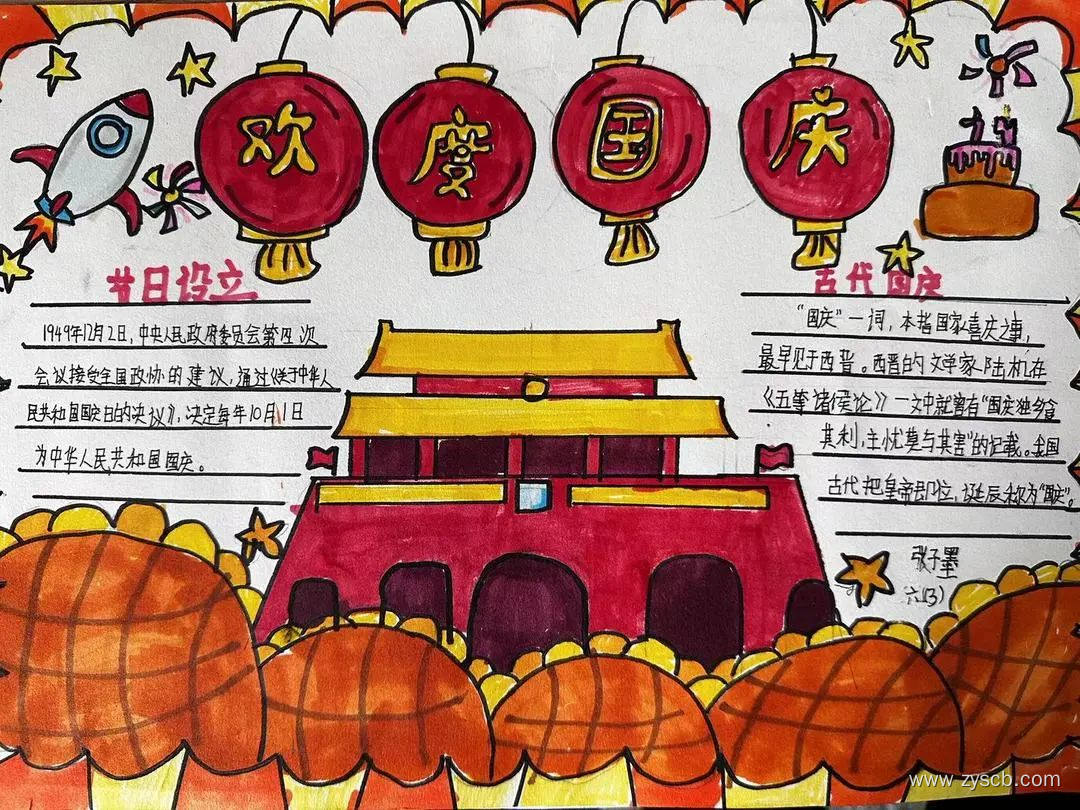 欢度国庆
节日设立
1949年12月2日,中央人民政府委员会第四次
会议接受全国政协的建议,通过《关于中华人
民共和国国庆日的决议》,决定每年10月1日
为中华人民共和国国庆。
古代国庆
“国庆”一词,本指国家喜庆之事,
最早见于西晋。西晋的文学家陆机在
《五等诸侯论》一文中就曾有“国庆独飨
其利,主忧莫与其害”的记载。我国
古代把皇帝即位、诞辰称为“国庆”。
张子墨
六(3)
www.zyscb.com